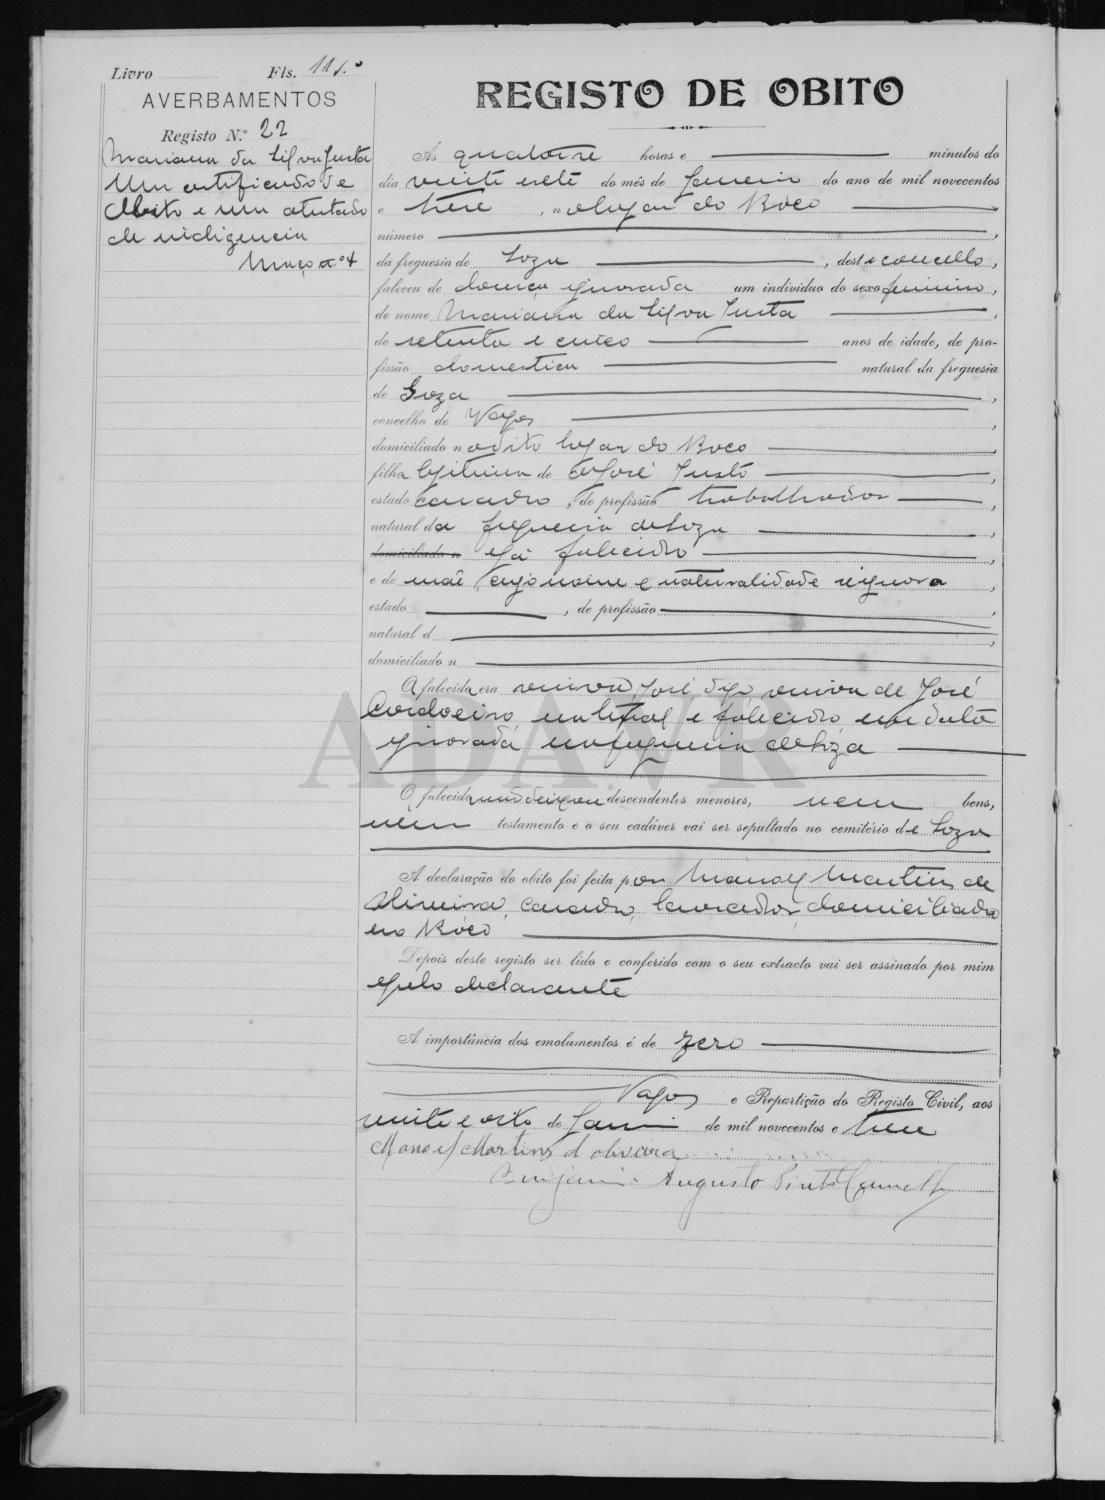 Livro Fls. 11 v.º
AVERBAMENTOS
Registo N.º 22
Mariana da Silva Justa
Um certificado de
Obito e um atestado
de indigencia
Maço nº 4
REGISTO DE OBITO
As quatorse horas e minutos do
dia vinte e sete do mês de Janeiro do ano de mil novecentos
e trese, no lugar do Boco
número
da freguesia de Soza, deste concello,
faleceu de doença ignorada um individuo do sexo feminino,
de nome Mariana da Silva Justa
de setenta e cinco anos de idade, de pro-
fissão domestica natural da freguesia
de Soza,
concelho de Vagos,
domiciliado no dito lugar do Boco
filha legitima de José Justo,
estado casado, de profissão trabalhador,
natural da freguesia de Soza,
domiciliado n e já falecido
e de mãe cujo nome e naturalidade se ignora,
estado, de profissão,
natural d,
domiciliado n
A falecida era viuva José, digo, viuva de José
Cordoeiro, natural e falecido, em data
ignorada na freguesia de Soza
O falecida não deixou descendentes menores, nem bens,
nem testamento e o seu cadáver vai ser sepultado no cemitério de Soza
A declaração do obito foi feita por Manoel Martins de
Oliveira, casado, lavrador, domiciliado
no Boco
Depois deste registo ser lido e conferido com o seu extracto vai ser assinado por mim
e pelo declarante
A importância dos emolumentos é de zero
Vagos e Repartição do Registo Civil, aos
vinte e oito de Janeiro de mil novecentos e trese
Manoel Martins d oliveira
Benjamim Augusto Pinto
ADAVR